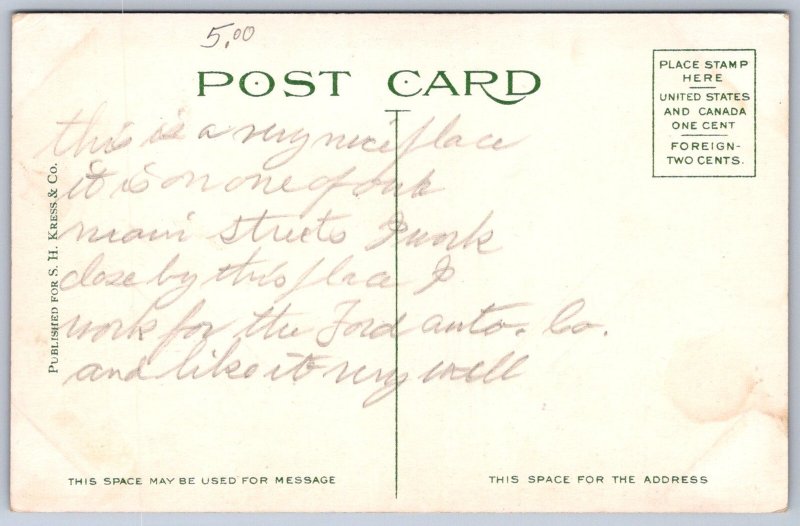 5.00
POST CARD
PLACE STAMP
HERE
UNITED STATES
AND CANADA
ONE CENT
FOREIGN-
TWO CENTS.
this is a very nice place
it is on one of our
main streets I work
close by this place I
work for the Ford auto. Co.
and like it very well
PUBLISHED FOR S. H. KRESS & CO.
THIS SPACE MAY BE USED FOR MESSAGE
THIS SPACE FOR THE ADDRESS